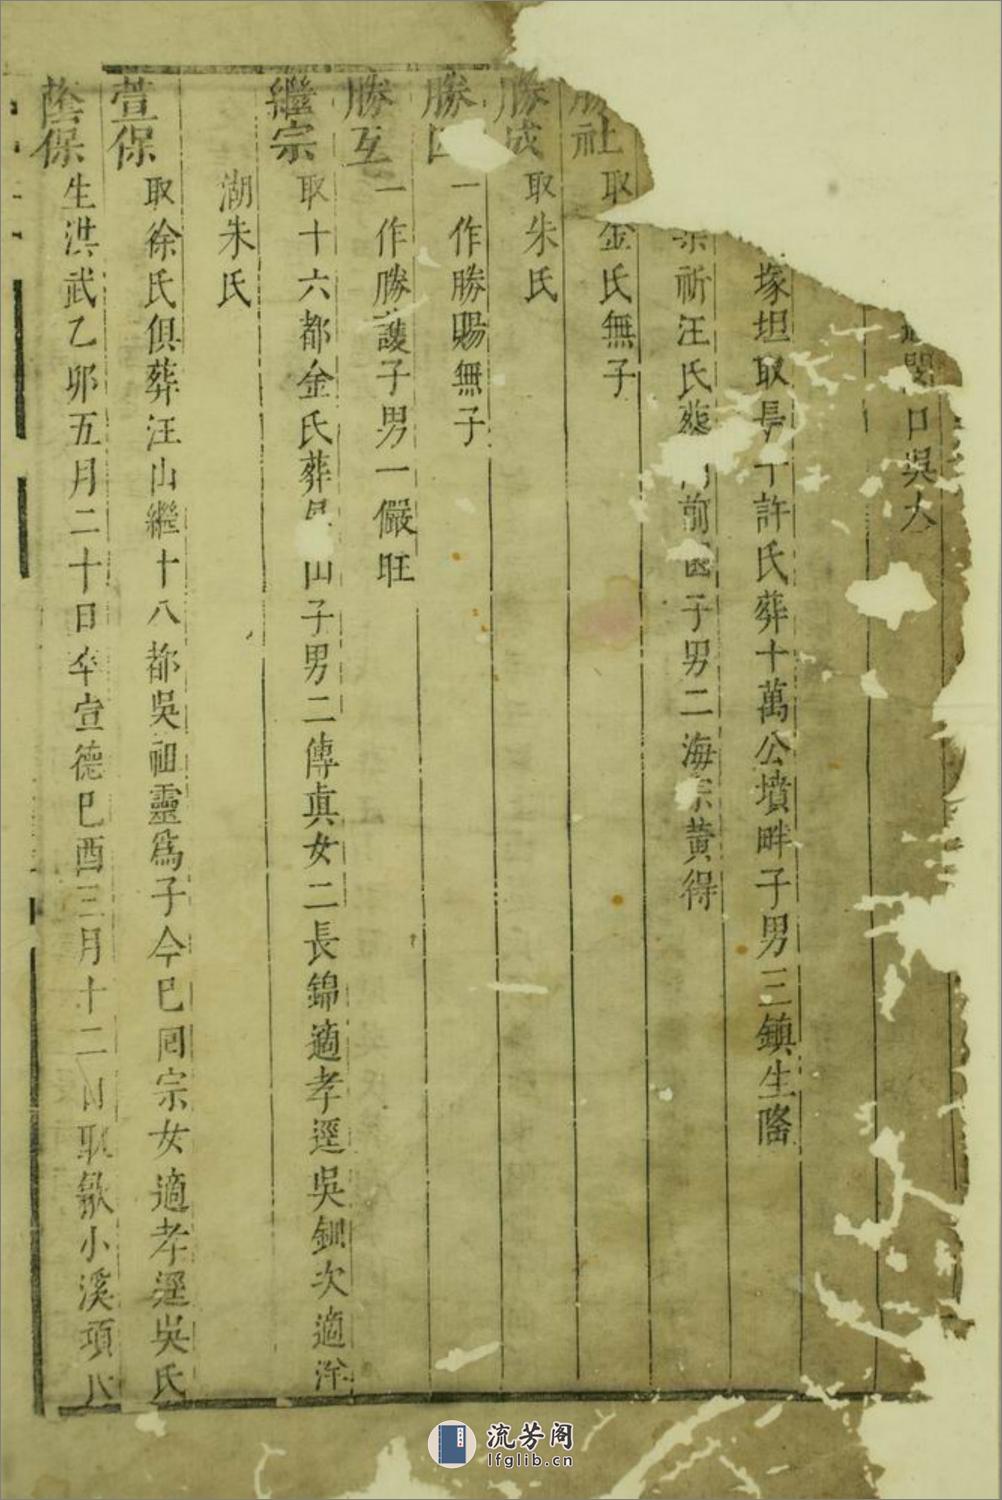 閔口吳大
塚坦取長十許氏葬十萬公墳畔子男三鎮生隆
祈汪氏葬前子男二海宗黃得
社 取金氏無子
勝成 取朱氏
勝 一作勝賜無子
勝互 一作勝護子男一儼旺
繼宗 取十六都金氏葬山子男二傳真女二長錦適孝逕吳釧次適洋
湖朱氏
萱保 取徐氏俱葬汪山繼十八都吳祖靈爲子今已回宗女適孝逕吳氏
蔭保 生洪武乙卯五月二十日卒宣德己酉三月十二日取歙小溪項氏
流芳阁
lfglib.cn